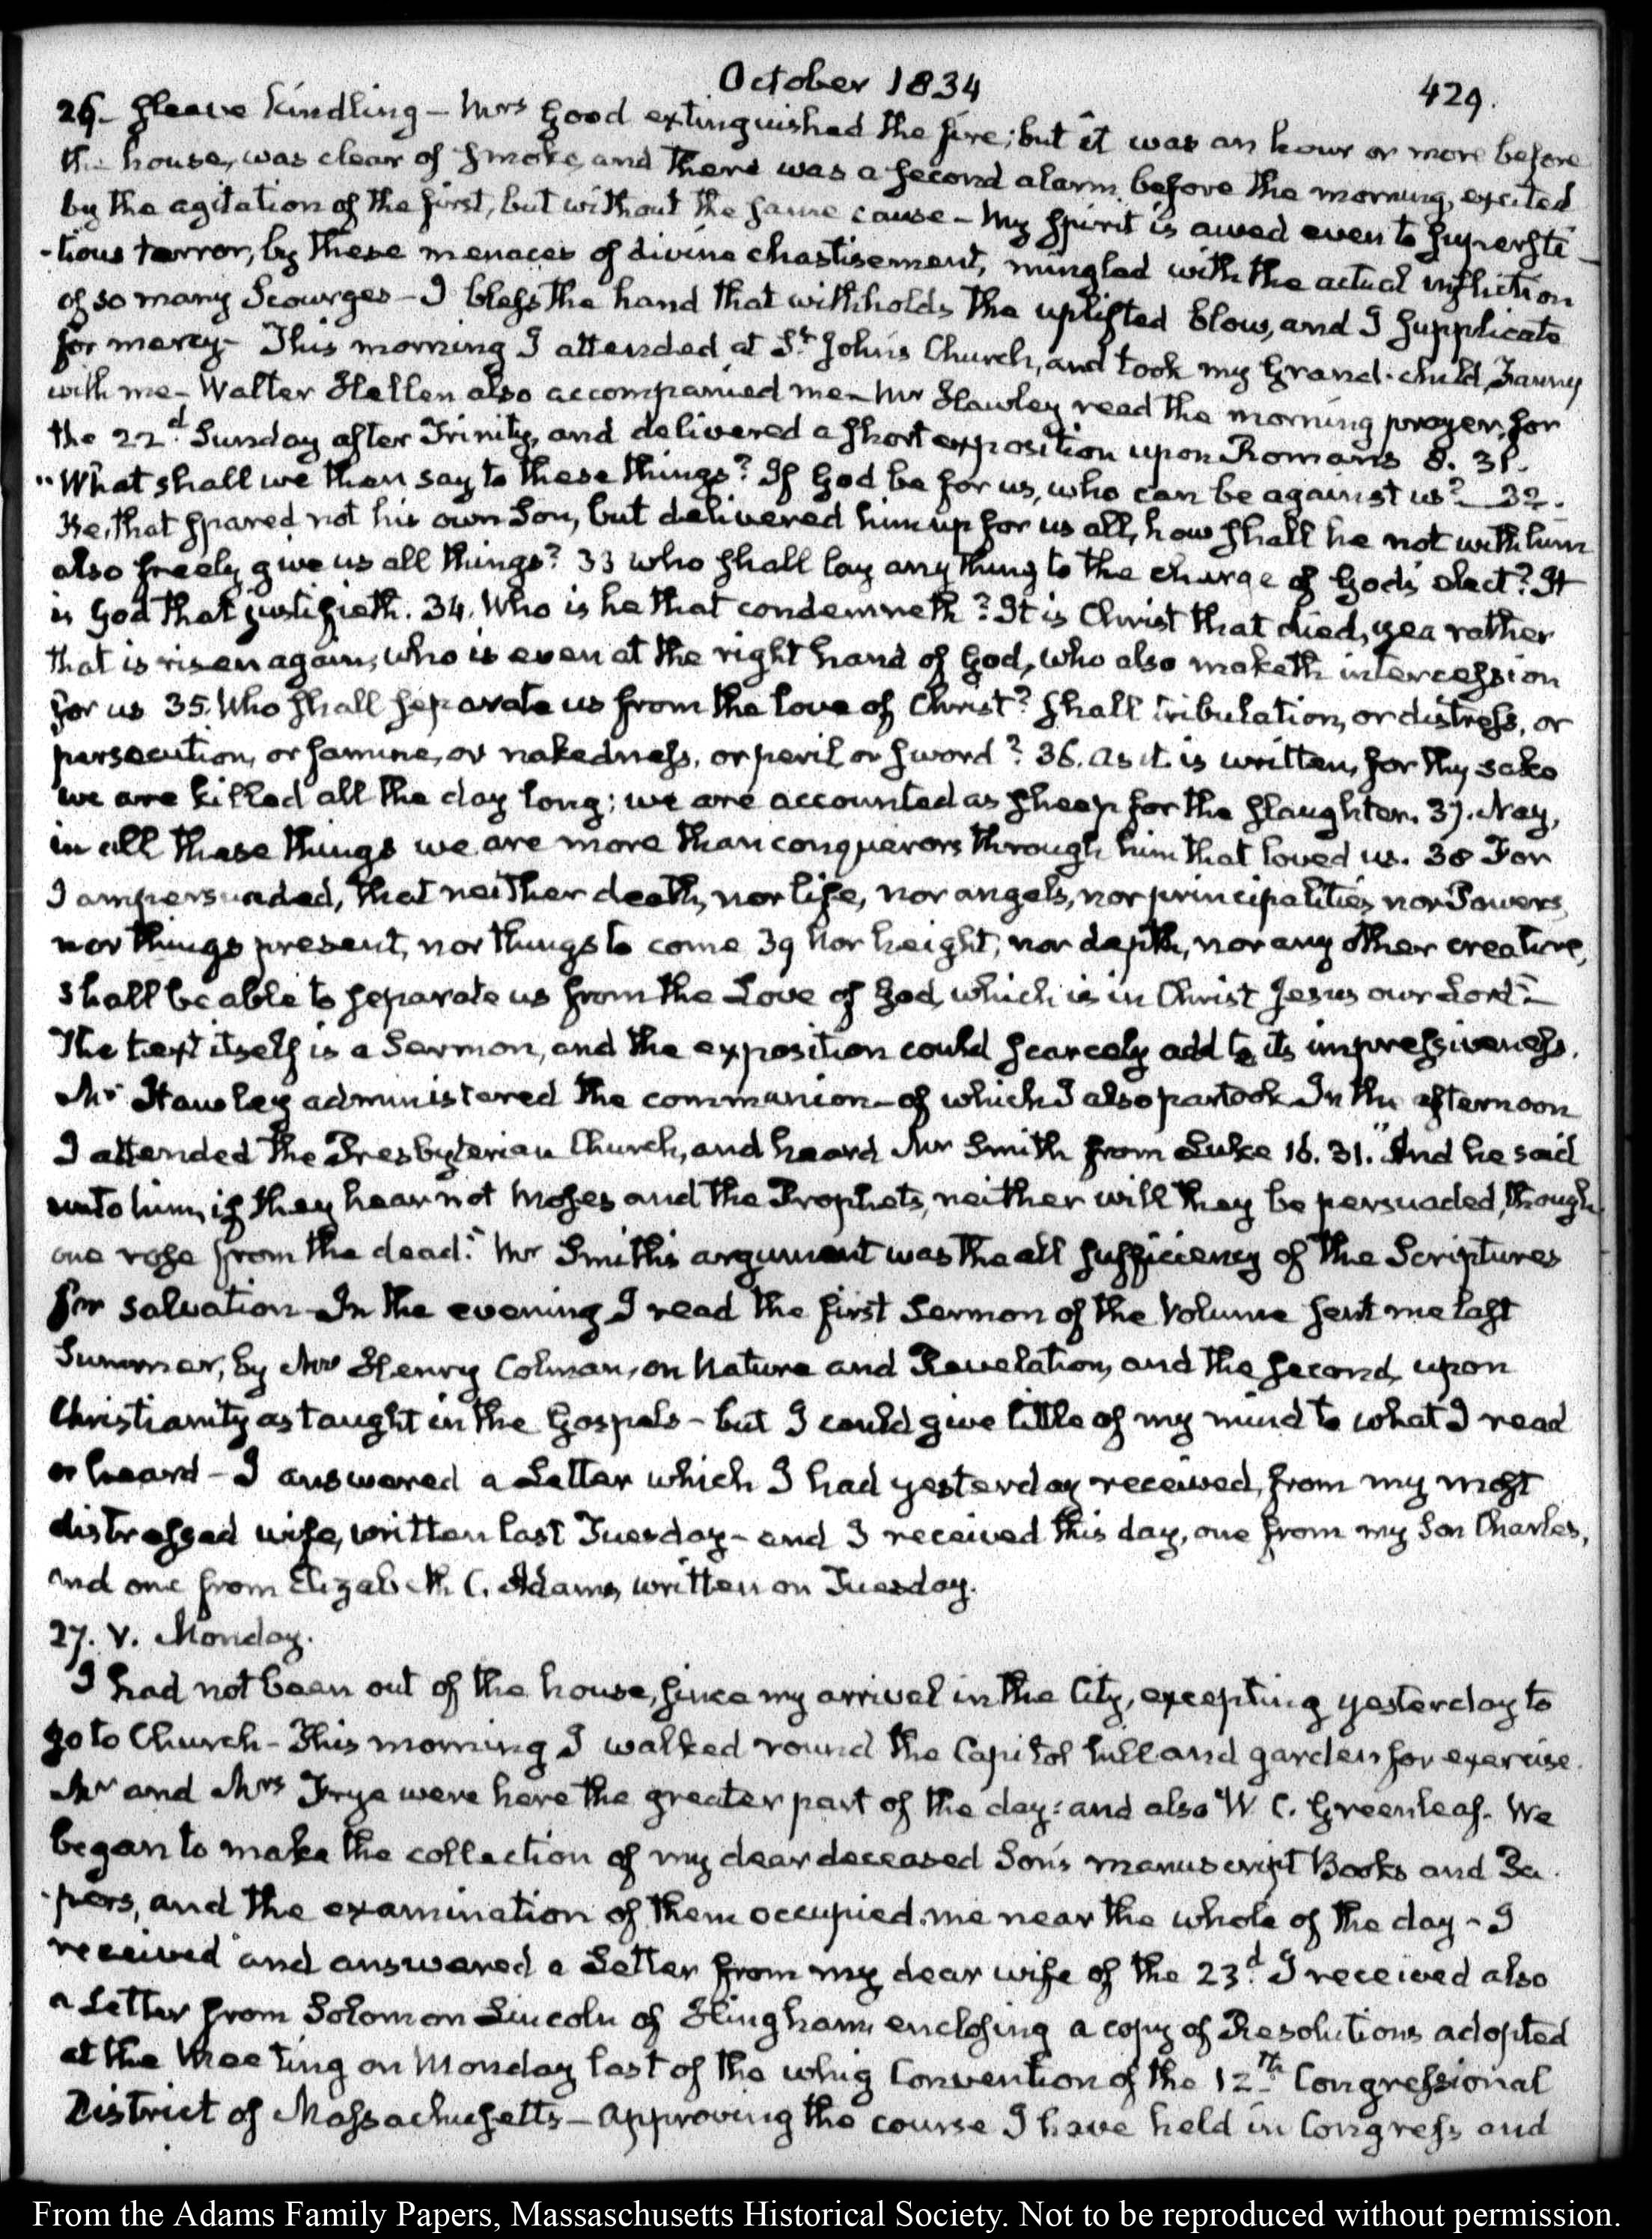 October 1834
429.
26- sleeve kindling – Mrs Good extinguished the fire; but it was an hour or more before
the house, was clear of smoke, and there was a second alarm before the morning, excited
by the agitation of the first, but without the same cause – My Spirit is awed even to supersti-
-tious terror, by these menaces of divine chastisement, mingled with the actual infliction
of so many Scourges – I bless the hand that withholds the uplifted blow, and I supplicate
for mercy – This morning I attended at St. John's Church, and took my Grand-child, Fanny
with me – Walter Hellen also accompanied me – Mr Hawley read the morning prayer, for
the 22d. Sunday after Trinity, and delivered a short exposition upon Romans 8. 31.
"What shall we then say to these things? If God be for us, who can be against us? – 32.
He, that spared not his own Son, but delivered him up for us all, how shall he not with him
also freely give us all things? 33 who shall lay any thing to the charge of God's elect? It
is God that justifieth. 34. Who is he that condemneth? It is Christ that died, yea rather
that is risen again, who is even at the right hand of God, who also maketh intercession
for us 35. Who shall separate us from the love of Christ? shall tribulation, or distress, or
persecution, or famine, or nakedness, or peril or sword? 36. as it is written, for thy sake
we are killed all the day long; we are accounted as sheep for the slaughter. 37. Nay,
in all these things we are more than conquerors through him that loved us. 38 For
I am persuaded, that neither death, nor life, nor angels, nor principalities nor Powers,
nor things present, nor things to come 39 Nor height, nor depth, nor any other creature,
shall be able to separate us from the Love of God, which is in Christ Jesus our Lord" –
The text itself is a Sermon, and the exposition could scarcely add to its impressiveness.
Mr Hawley administered the communion – of which I also partook In the afternoon
I attended the Presbyterian Church, and heard Mr Smith from Luke 16. 31. "And he said
unto him, if they hear not Moses and the Prophets, neither will they be persuaded, though
one rose from the dead." Mr Smith's argument was the all sufficiency of the Scriptures
for salvation – In the evening I read the first Sermon of the Volume sent me last
Summer, by Mr Henry Colman, on Nature and Revelation, and the second, upon
Christianity as taught in the Gospels – but I could give little of my mind to what I read
or heard – I answered a Letter which I had yesterday received, from my most
distressed wife, written last Tuesday – and I received this day, one from my Son Charles,
and one from Elizabeth C. Adams, written on Tuesday.
27. V. Monday.
I had not been out of the house, since my arrival in the City, excepting yesterday to
go to Church – This morning I walked round the Capitol hill and garden for exercise.
Mr and Mrs Frye were here the greater part of the day: and also W. C. Greenleaf. We
began to make the collection of my dear deceased Son's manuscript Books and Pa-
-pers, and the examination of them occupied me near the whole of the day – I
received and answered a Letter from my dear wife of the 23d. I received also
a Letter from Solomon Lincoln of Hingham, enclosing a copy of Resolutions adopted
at the Meeting on Monday last of the whig Convention of the 12th Congressional
District of Massachusetts – approving the course I have held in Congress and
From the Adams Family Papers, Massachusetts Historical Society. Not to be reproduced without permission.